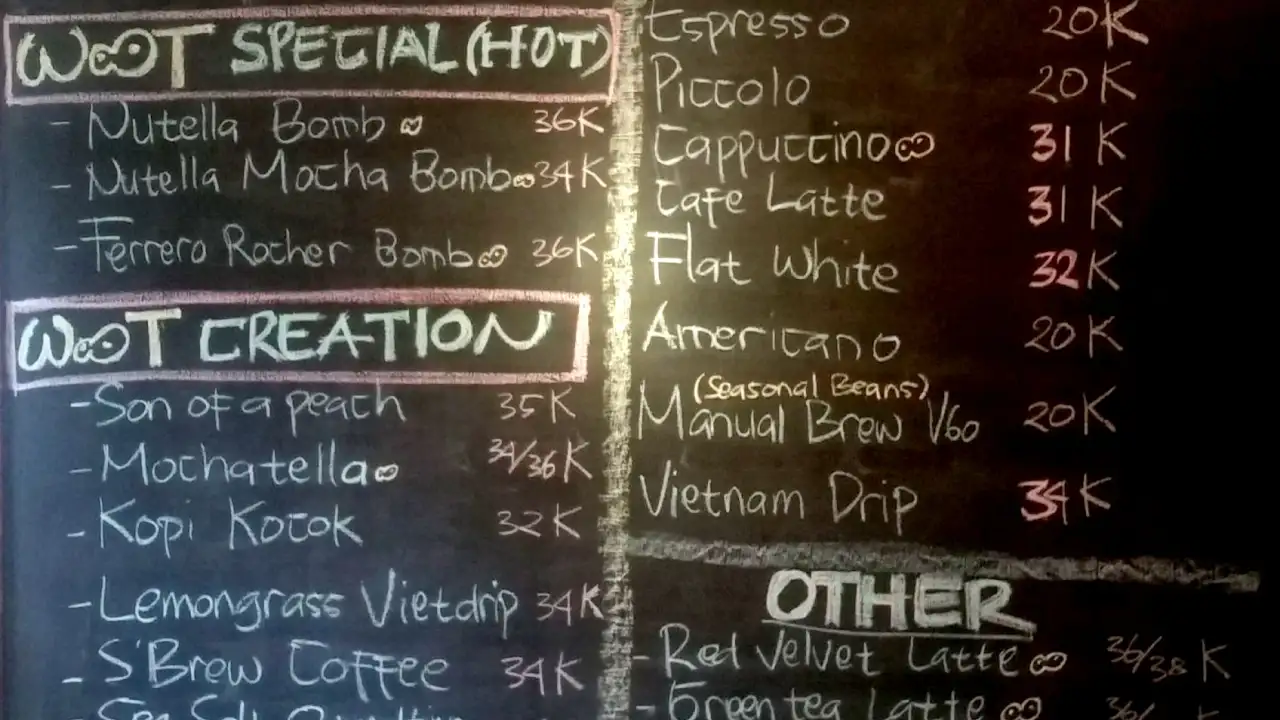 WOOT SPECIAL (HOT)
- Nutella Bomb 36K
- Nutella Mocha Bomb 34K
- Ferrero Rocher Bomb 36K
WOOT CREATION
- Son of a peach 35K
- Mochatella 34/36K
- Kopi Kocok 32K
- Lemongrass Vietdrip 34K
- S'Brew Coffee 34K
- Sea Salt
Espresso 20K
Piccolo 20K
Cappuccino 31K
Cafe Latte 31K
Flat White 32K
Americano 20K
(Seasonal Beans)
Manual Brew V60 20K
Vietnam Drip 34K
OTHER
- Red Velvet Latte 36/38K
- Green tea Latte